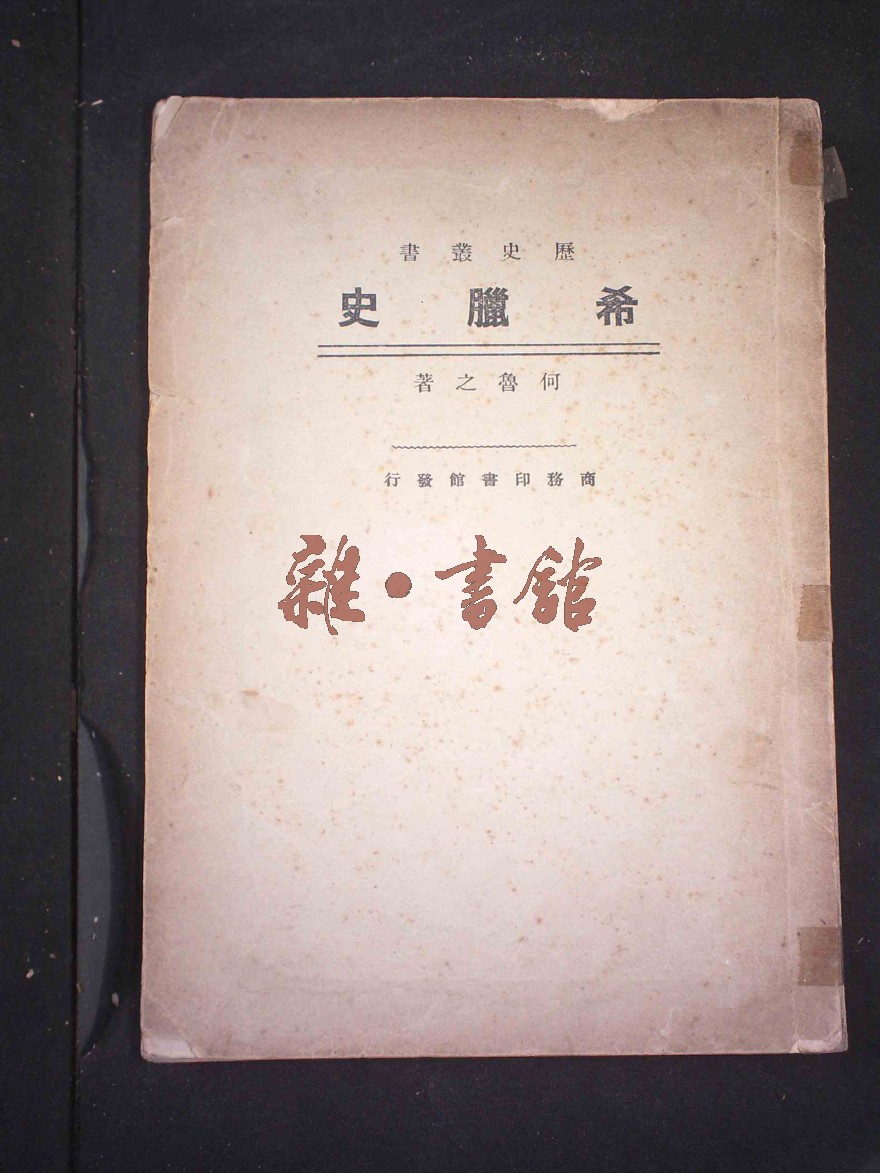 歷史叢書
希臘史
何魯之著
商務印書館發行
雜·書館